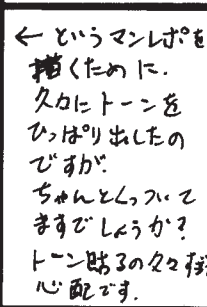 ← というマンレポを
描くために.
久々にトーンを
ひっぱり出したの
ですが.
ちゃんとくっついて
ますでしょうか?
トーン貼るの久々すぎ
心配です.